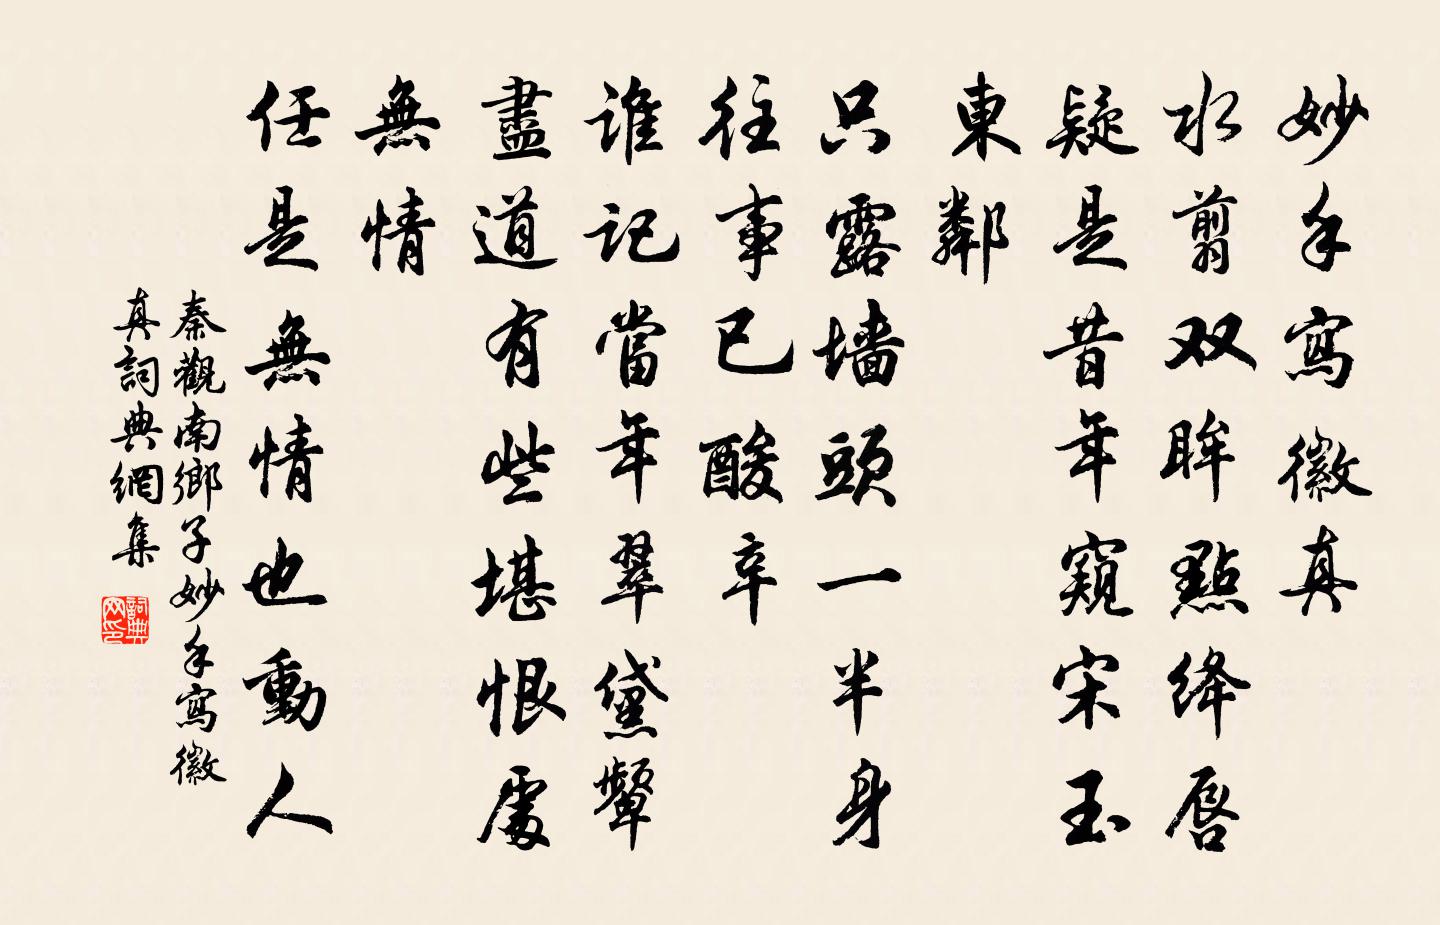 妙手寫徽真
水翦双眸點绛唇
疑是昔年窺宋玉
東鄰
只露墙頭一半身
往事已酸辛
谁記當年翠黛顰
盡道有些堪恨處
無情
任是無情也動人
秦觀南鄉子妙手寫徽
真詞典網集
詞典网印